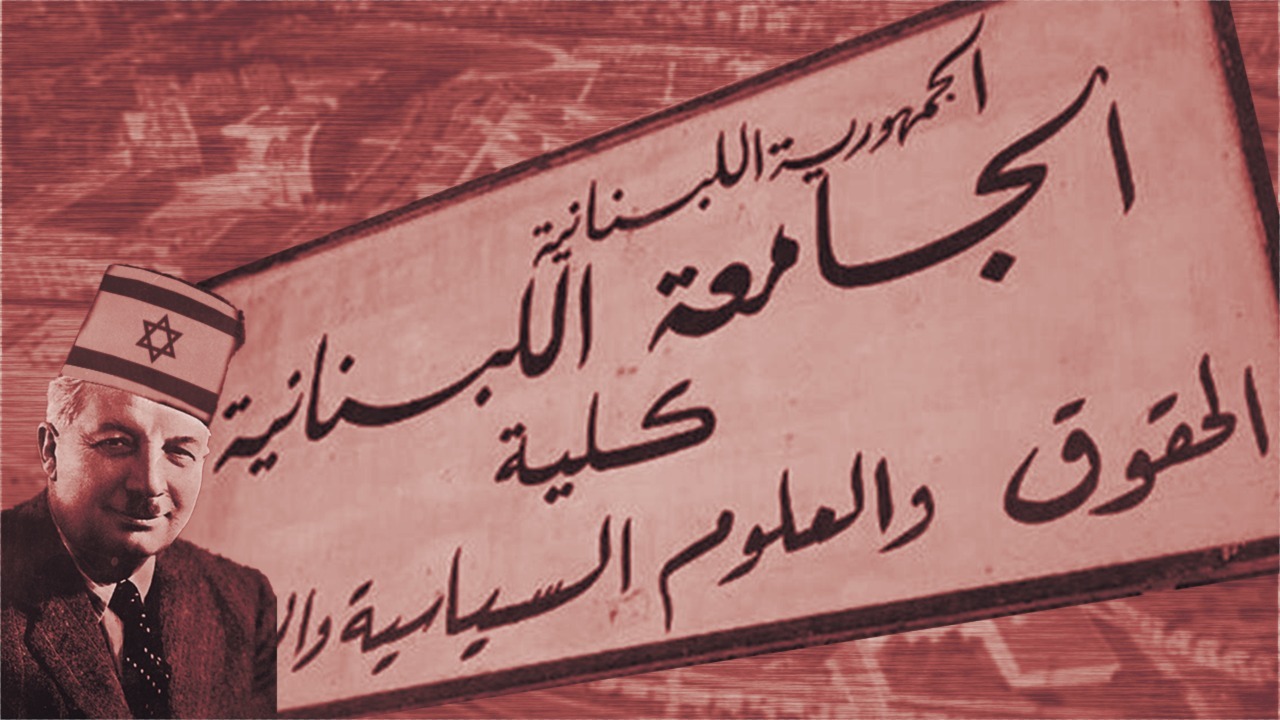 الجمهورية اللبنانية
الجامعة اللبنانية
كلية
الحقوق والعلوم السياسية